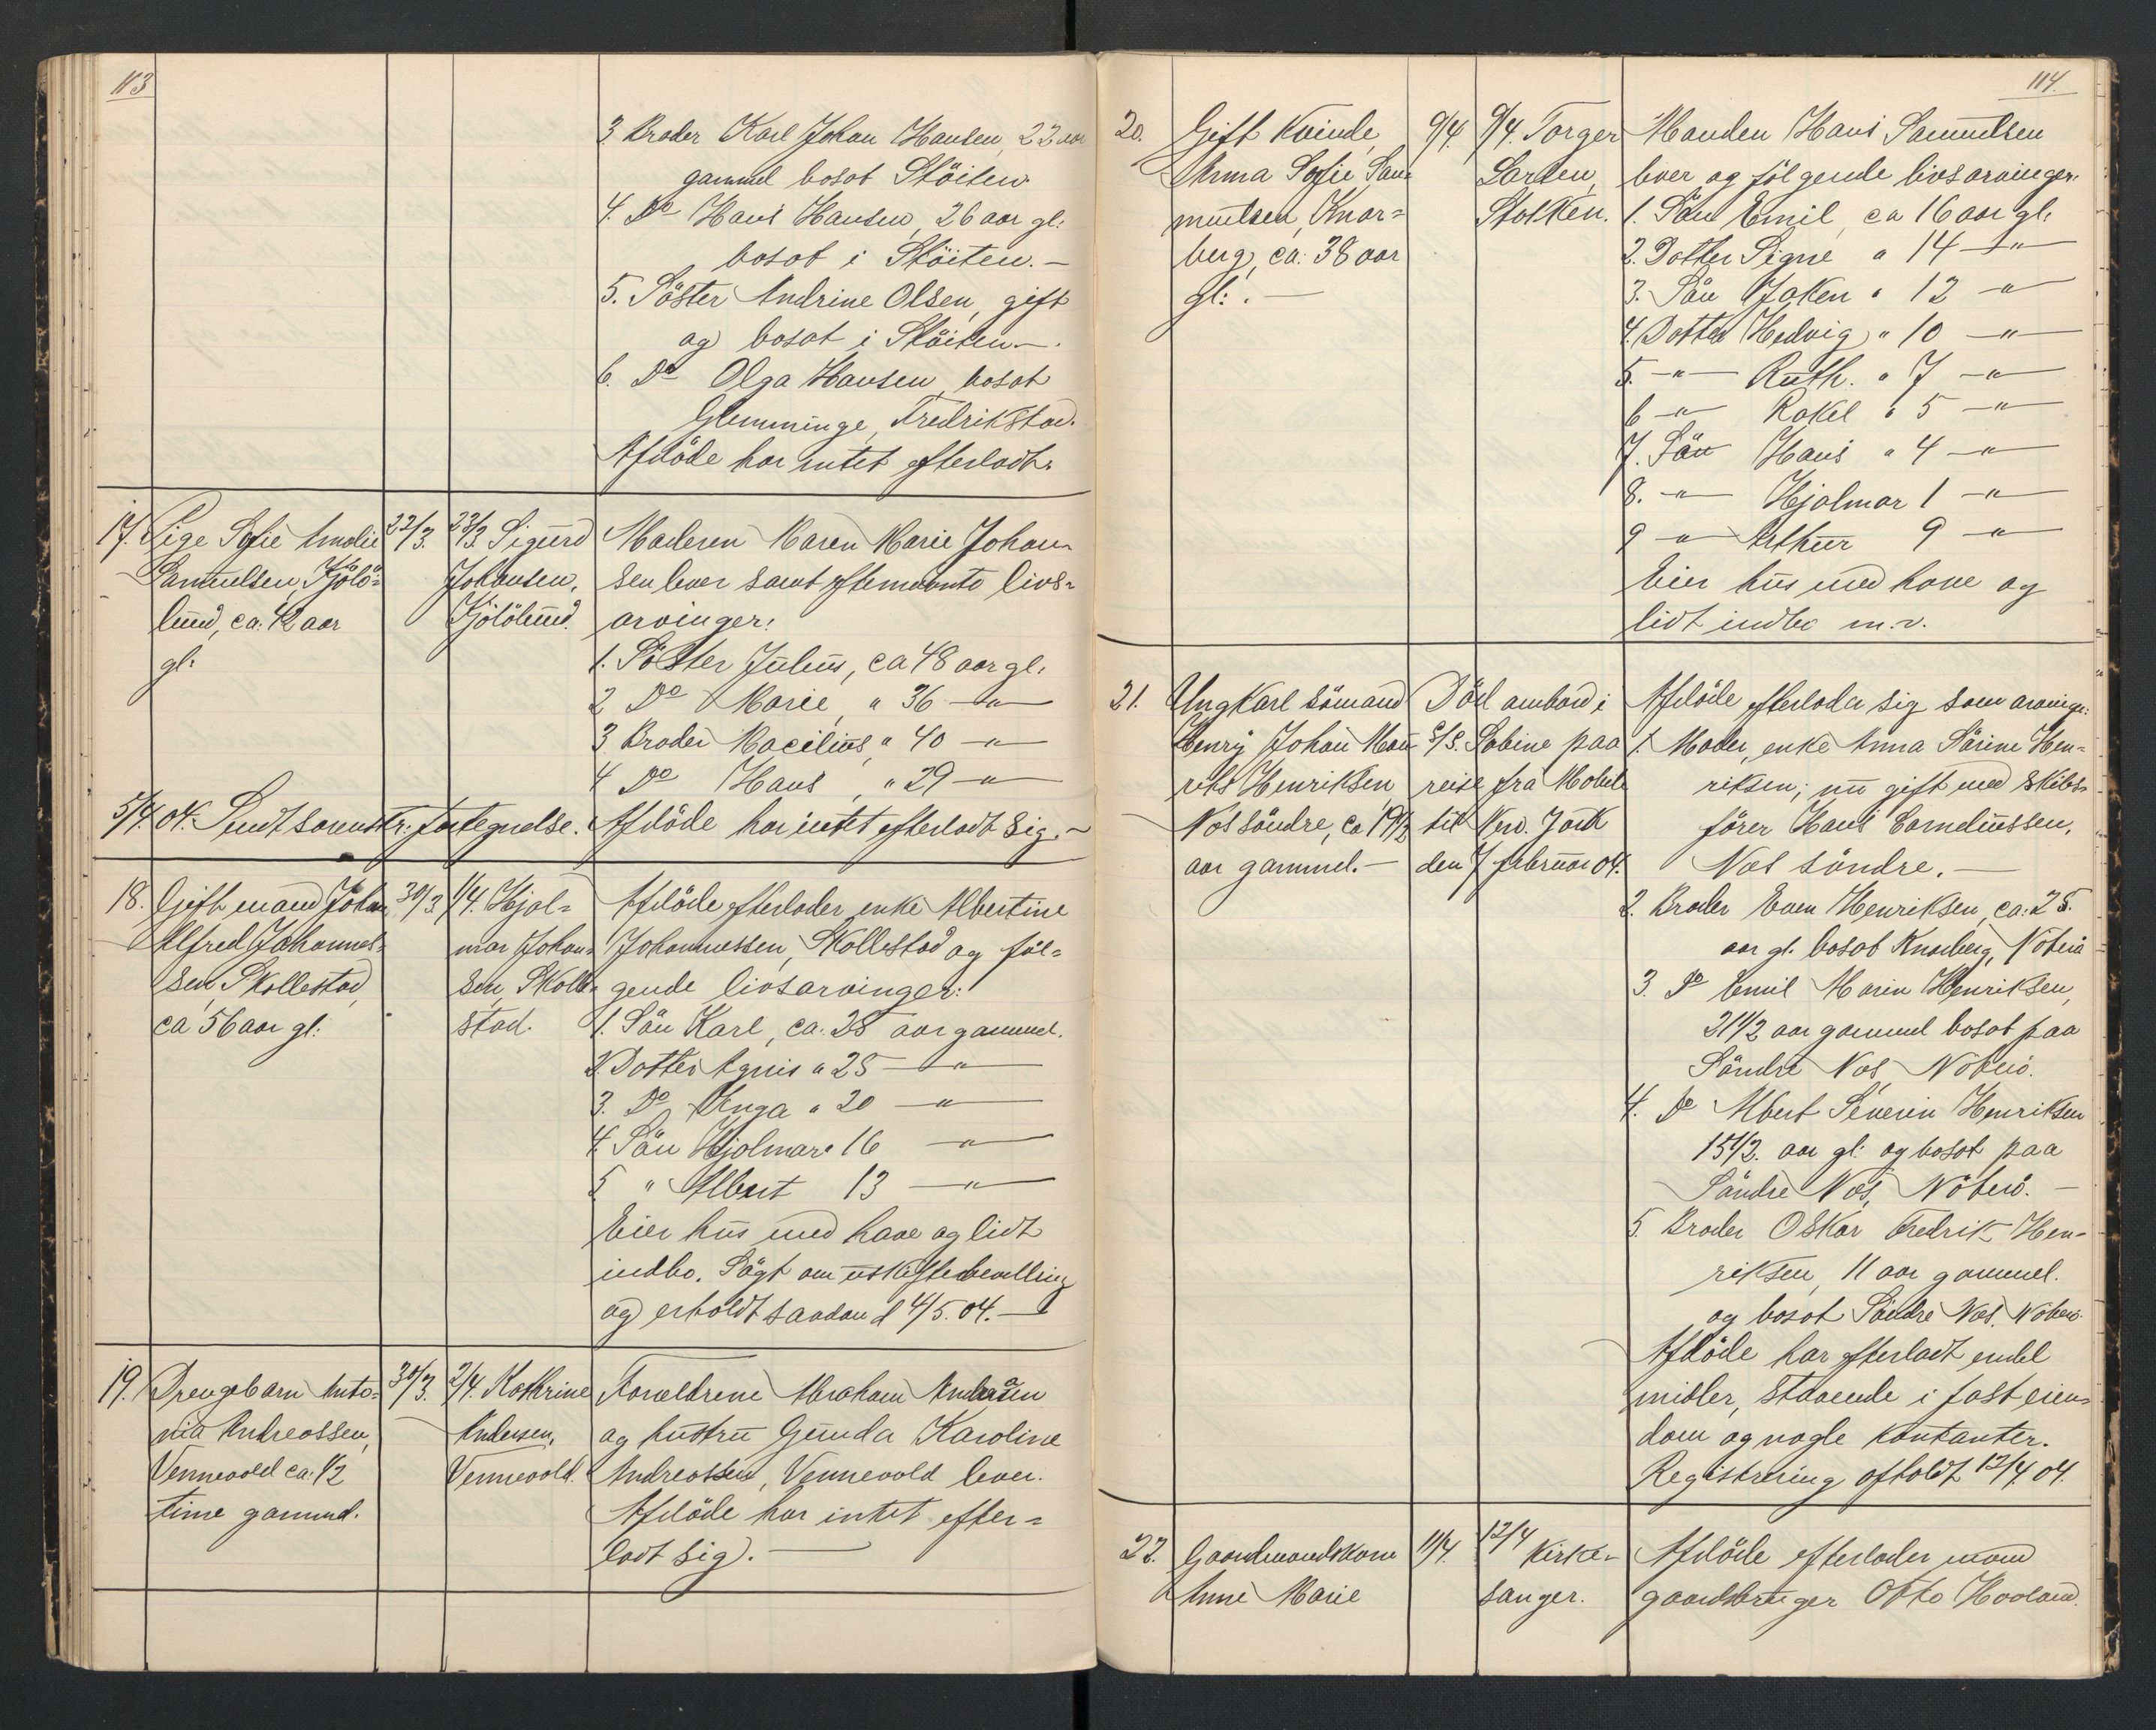 113
3. Broder Karl Johan Hansen, 22 aar
gammel bosat Stöiten
4. Do Hans Hansen, 26 aar gl.
bosat i Stöiten. —
5. Söster Andrine Olsen, gift
og bosat i Stöiten —.
6. Do Olga Hansen, bosat
Glemminge, Fredrikstad.
Afdöde har intet efterladt.
17. Pige Sofie Amalie
Samuelsen, Kjölö=
lund, ca. 42 aar
gl.
22/3.
23/3. Sigurd
Johansen,
Kjölölund.
Moderen Maren Marie Johan-
sen lever samt efternævnte livs-
arvinger:
1. Söster Julius, ca 48 aar gl.
2 Do Marie, " 36 —"—
3 Broder Macilius, " 40 —"—
4 Do Hans, " 29 —"—
5/4. 04. Sendt sorenskr. fortegnelse. Afdöde har intet efterladt sig. —
18. Gift mand Johan
Alfred Johannes-
sen, Skollestad,
ca 56 aar gl.
30/3
1/4. Hjal=
mar Johan-
sen, Skolle-
stad.
Afdöde efterlader enke Albertine
Johannessen, Skollestad og föl=
gende livsarvinger:
1. Sön Karl, ca. 28 aar gammel.
2. Dotter Agnis " 25 —"—
3. Do Inga " 20 —"—
4. Sön Hjalmar " 16 —"—
5 " Albert 13 —"—
Eier hus med have og lidt
indbo. Sögt om uskiftebevilling
og erholdt saadan d 4/5. 04. —
19. Drengebarn Anto-
nia Andreassen,
Vennevold ca. 1/2
time gammel.
30/3.
2/4. Kathrine
Andersen,
Vennevold.
Forældrene Abraham Andreasen
og hustru Gunda Karoline
Andreassen, Vennevold lever.
Afdöde har intet efter=
ladt sig. —
114.
20. Gift kvinde
Anna Sofie Sam-
muelsen, Knar=
berg, ca. 38 aar
gl. . —
9/4.
9/4. Torger
Larsen,
Stokken.
Manden Hans Samuelsen
lever og fölgende livsarvinger.
1. Sön Emil, ca 16 aar gl.
2. Dotter Signe " 14 —"—
3. Sön Joken " 12 —"—
4. Dotter Hedvig " 10 —"—
5. —"— Ruth. " 7 —"—
6 —"— Rakel " 5 —"—
7. Sön Hans " 4 —"—
8. —"— Hjalmar 1 —"—
9 —"— Arthur 9 —"—
Eier hus med have og
lidt indbo m.v.
21. Ungkarl sömand
Henry Johan Hen-
riks Henriksen
Nes söndre, ca 19 1/2
aar gammel. —
Död ombord i
S/S. Sabine paa
reise fra Mobile
til New. York
den 7 februar 04.
Afdöde efterlader sig som arvinger:
1. Moder, enke Anna Sörine Hen-
riksen; nu gift med skibs-
förer Hans Corneliussen,
Nes söndre. —
2. Broder Even Henriksen, ca. 25.
aar gl. bosat Knarberg, Nöterö
3. Do Emil Marin Henriksen,
21 1/2 aar gammel bosat paa
Söndre Nes, Nöterö.
4. Do Albert Severin Henriksen
15 1/2. aar gl. og bosat paa
Söndre Nes, Nöterö. —
5. Broder Oskar Fredrik Hen-
riksen, 11 aar gammel.
og bosat Söndre Nes. Nöterö.
Afdöde har efterladt endel
midler, staaende i fast eien-
dom og nogle kontanter.
Registrering afholdt 12/4 04.
22. Gaardmandskone
Anne Marie
11/4.
12/4 Kirke-
sanger.
Afdöde efterlader mand
gaardbruger Otto Hovland.